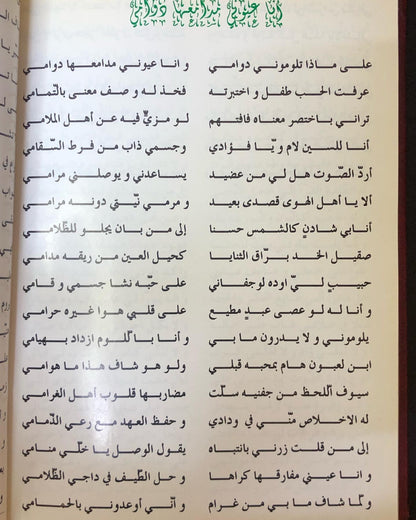 أنا عيوني مدامعها دوامي
على ماذا تلوموني دوامي و انا عيوني مدامعها دوامي
عرفت الحب طفل و اختبرته فخذ له و صف معنى بالتمامي
تراني باختصر معناه فافتهم لو مزيٍّ فيه عن أهل الملامي
أنا للسين لام و يّا فؤادي وجسمي ذاب من فرط السقامي
أردّ الصّوت هل لي من عضيد يساعدني و يوصلني مرامي
ألا يا أهل الهوى قصدى بعيد و مرمي نيّتي دونه مرامي
أنابي شادنٍ كالشمس حسنا إلى من بان يجلو للظّلامي
صقيل الخد برّاق الثنايا كحيل العين من ريقه مدامي
حبيبٍ لـيّ اوده لوجفاني على حبّه نشا جسمي و قامي
و انا له لو عصى عبدٍ مطيع على قلبي هوا غيره حرامي
يلوموني و لا يدرون ما بي و أنا باللوم ازداد بهيامي
ابن لعبون هام بمحبه قبلي ولو هو شاف هذا ما هوامي
سيوف ألحظ من جفنيه سلّت مضاربها قلوب أهل الغرامي
له الاخلاص منّي في ودادي و حفظ العهد مع رعي الذّمامي
إلى من قلت زرني بانتباه يقول الوصل يا خلّي منامي
و انا عيني مفارقها كراها و حل الطّيف في داجي الظّلامي
و لّما شاف ما بي من غرام و أنّي أوعدوني بالحمامي